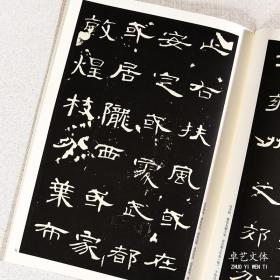 止右扶風或在
安定或處武都
或居隴西或家
敦煌枝分葉布
卓艺文体
ZHUO YI WEN TI